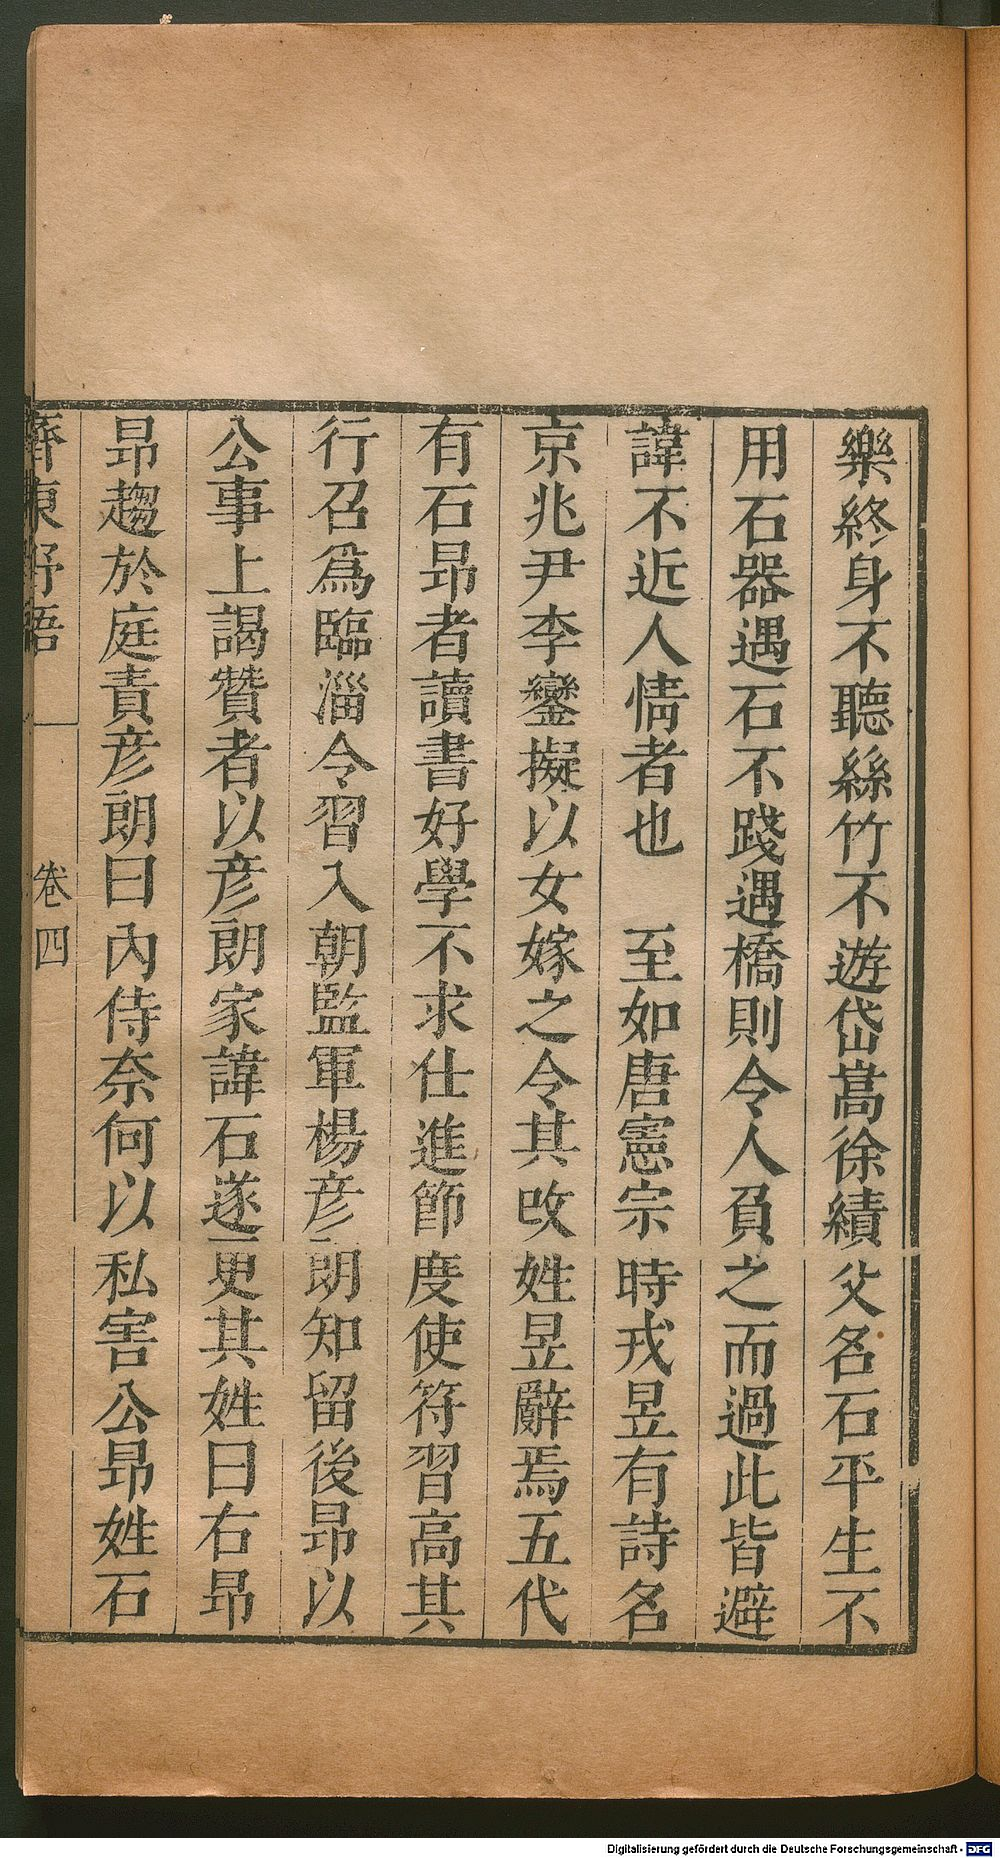 樂終身不聽絲竹不遊岱嵩徐績父名石平生不
用石器遇石不踐遇橋則令人負之而過此皆避
諱不近人情者也　至如唐憲宗時戎昱有詩名
京兆尹李鑾擬以女嫁之令其改姓昱辭焉五代
有石昂者讀書好學不求仕進節度使符習高其
行召爲臨淄令習入朝監軍楊彦朗知留後昂以
公事上謁贊者以彦朗家諱石遂更其姓曰右昂
昂趨於庭責彦朗曰內侍奈何以私害公昂姓石
齊東野語
卷四
Digitalisierung gefördert durch die Deutsche Forschungsgemeinschaft - DFG